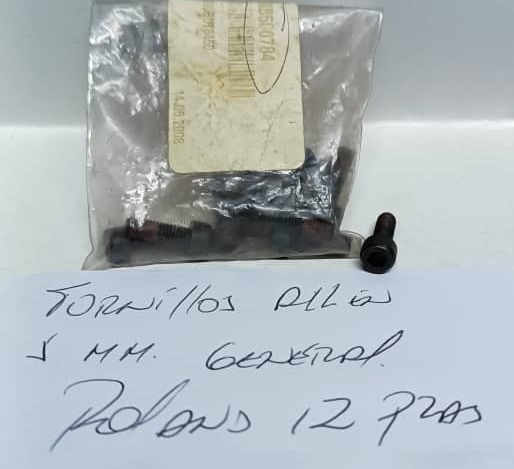 14.05.2008
TORNILLOS ALLEN
5 MM. GENERAL.
ROLAND 12 PZAS